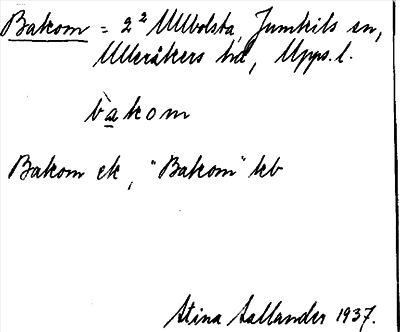 Bakom = 2² Ullbolsta, Jumkils sn,
Ulleråkers hd, Upps. l.
bàkom
Bakom ek, "Bakom" kb
Stina Sallander 1937.